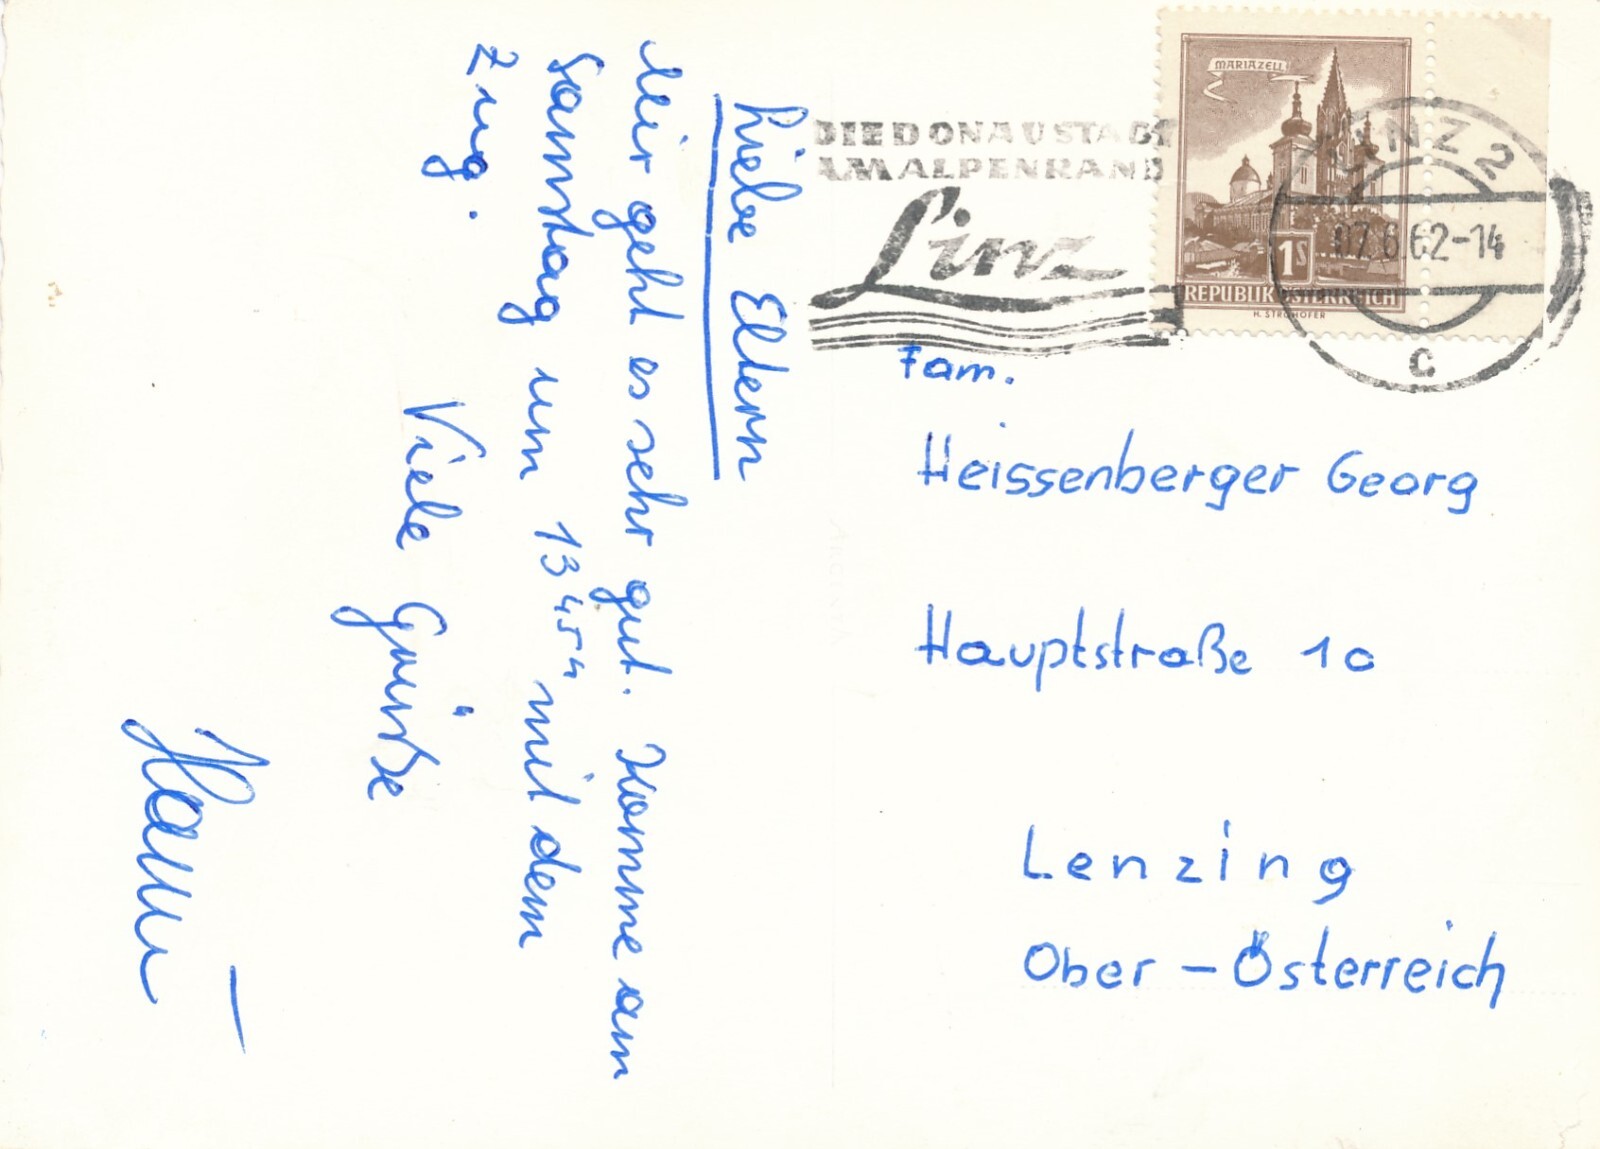 Liebe Eltern
Mir geht es sehr gut. Komme am
Samstag um 13⁴⁵ʰ mit dem
Zug.
Viele Grüße
DIE DONAUSTADT
AM ALPENRAND
Linz
MARIAZELL
1S
REPUBLIK ÖSTERREICH
H. STROHOFER
LINZ 2
07.6.62-14
C
Fam.
Heissenberger Georg
Hauptstraße 10
Lenzing
Ober-Österreich